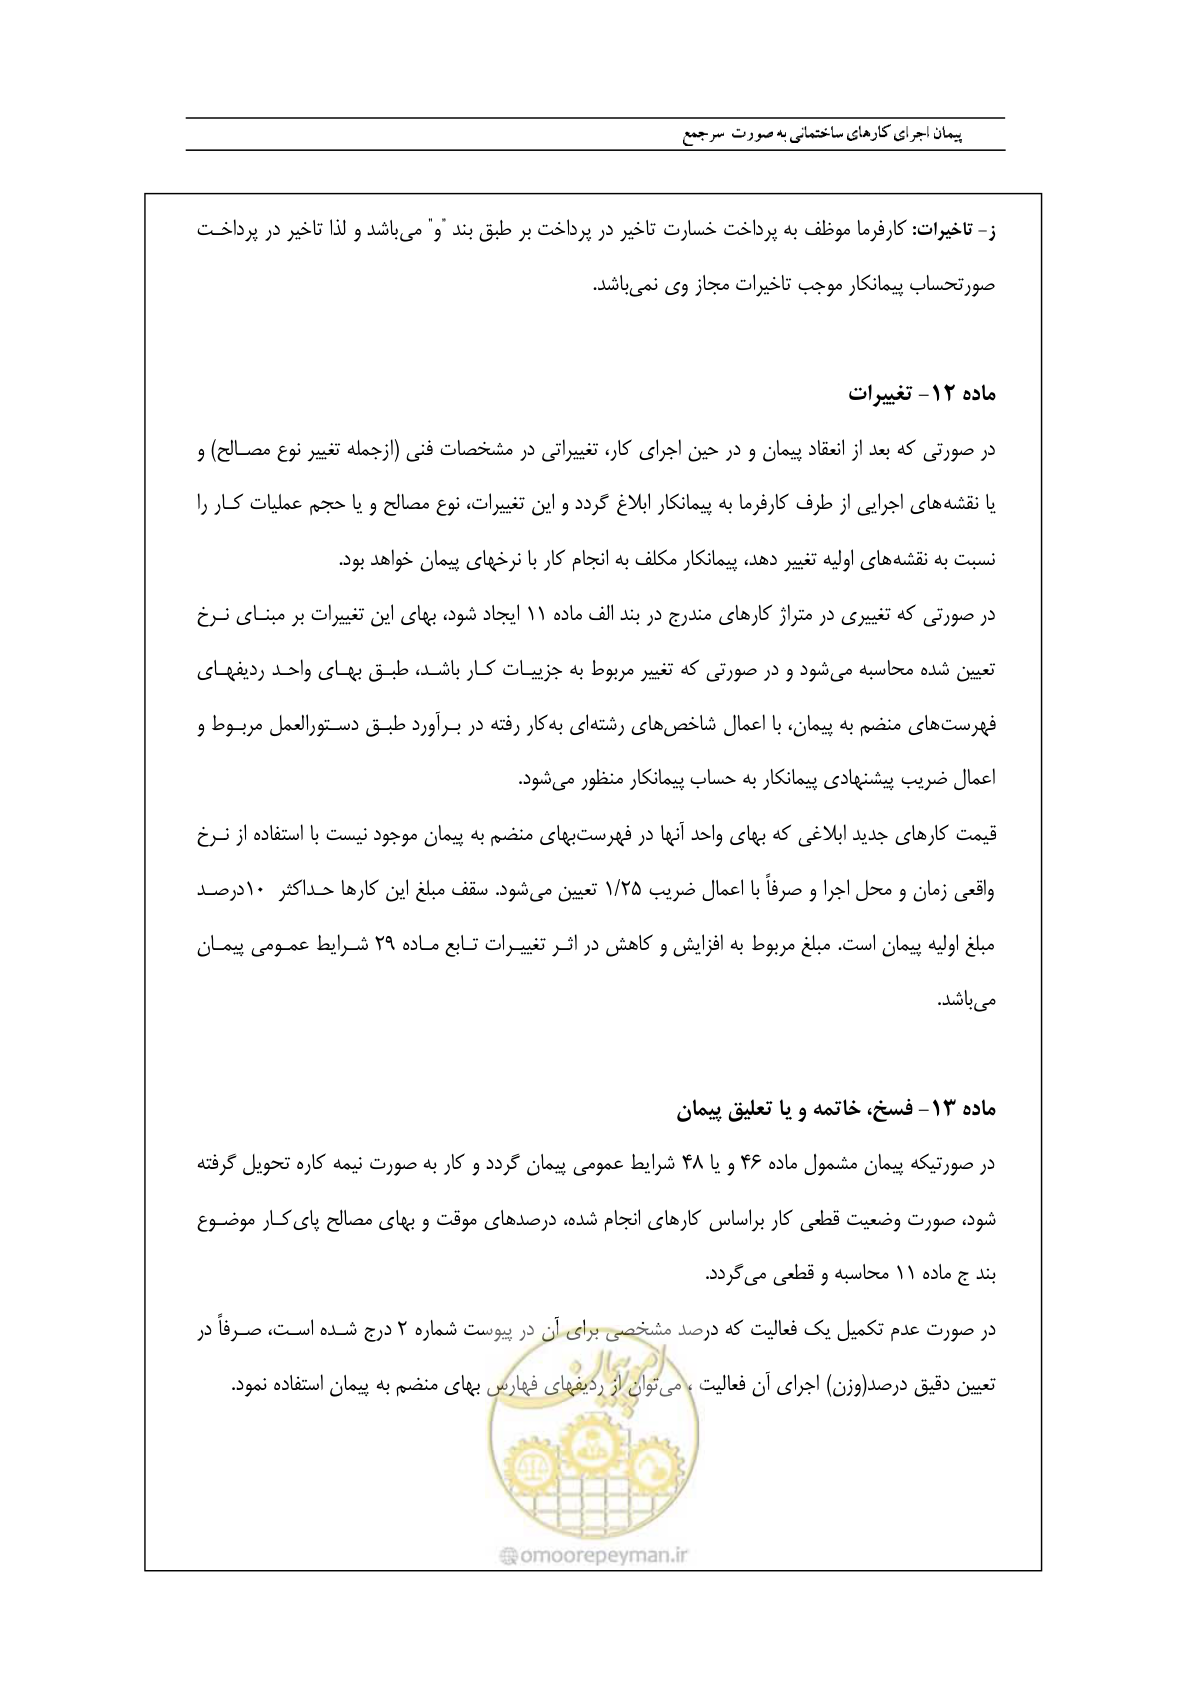 پیمان اجرای کارهای ساختمانی به صورت سرجمع
ز- تاخیرات: کارفرما موظف به پرداخت خسارت تاخیر در پرداخت بر طبق بند "و" می‌باشد و لذا تاخیر در پرداخت
صورتحساب پیمانکار موجب تاخیرات مجاز وی نمی‌باشد.
ماده ۱۲- تغییرات
در صورتی که بعد از انعقاد پیمان و در حین اجرای کار، تغییراتی در مشخصات فنی (ازجمله تغییر نوع مصالح) و
یا نقشه‌های اجرایی از طرف کارفرما به پیمانکار ابلاغ گردد و این تغییرات، نوع مصالح و یا حجم عملیات کار را
نسبت به نقشه‌های اولیه تغییر دهد، پیمانکار مکلف به انجام کار با نرخهای پیمان خواهد بود.
در صورتی که تغییری در متراژ کارهای مندرج در بند الف ماده ۱۱ ایجاد شود، بهای این تغییرات بر مبنای نرخ
تعیین شده محاسبه می‌شود و در صورتی که تغییر مربوط به جزییات کار باشد، طبق بهای واحد ردیفهای
فهرست‌های منضم به پیمان، با اعمال شاخص‌های رشته‌ای به‌کار رفته در برآورد طبق دستورالعمل مربوط و
اعمال ضریب پیشنهادی پیمانکار به حساب پیمانکار منظور می‌شود.
قیمت کارهای جدید ابلاغی که بهای واحد آنها در فهرست‌بهای منضم به پیمان موجود نیست با استفاده از نرخ
واقعی زمان و محل اجرا و صرفاً با اعمال ضریب ۱/۲۵ تعیین می‌شود. سقف مبلغ این کارها حداکثر ۱۰درصد
مبلغ اولیه پیمان است. مبلغ مربوط به افزایش و کاهش در اثر تغییرات تابع ماده ۲۹ شرایط عمومی پیمان
می‌باشد.
ماده ۱۳- فسخ، خاتمه و یا تعلیق پیمان
در صورتیکه پیمان مشمول ماده ۴۶ و یا ۴۸ شرایط عمومی پیمان گردد و کار به صورت نیمه کاره تحویل گرفته
شود، صورت وضعیت قطعی کار براساس کارهای انجام شده، درصدهای موقت و بهای مصالح پای‌کار موضوع
بند ج ماده ۱۱ محاسبه و قطعی می‌گردد.
در صورت عدم تکمیل یک فعالیت که درصد مشخصی برای آن در پیوست شماره ۲ درج شده است، صرفاً در
تعیین دقیق درصد(وزن) اجرای آن فعالیت ، می‌توان از ردیفهای فهارس بهای منضم به پیمان استفاده نمود.
امور پیمان
@omoorepeyman.ir